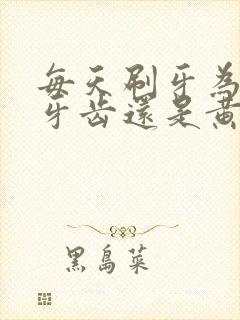 每天刷牙為
牙齒還是黃
黑島菜